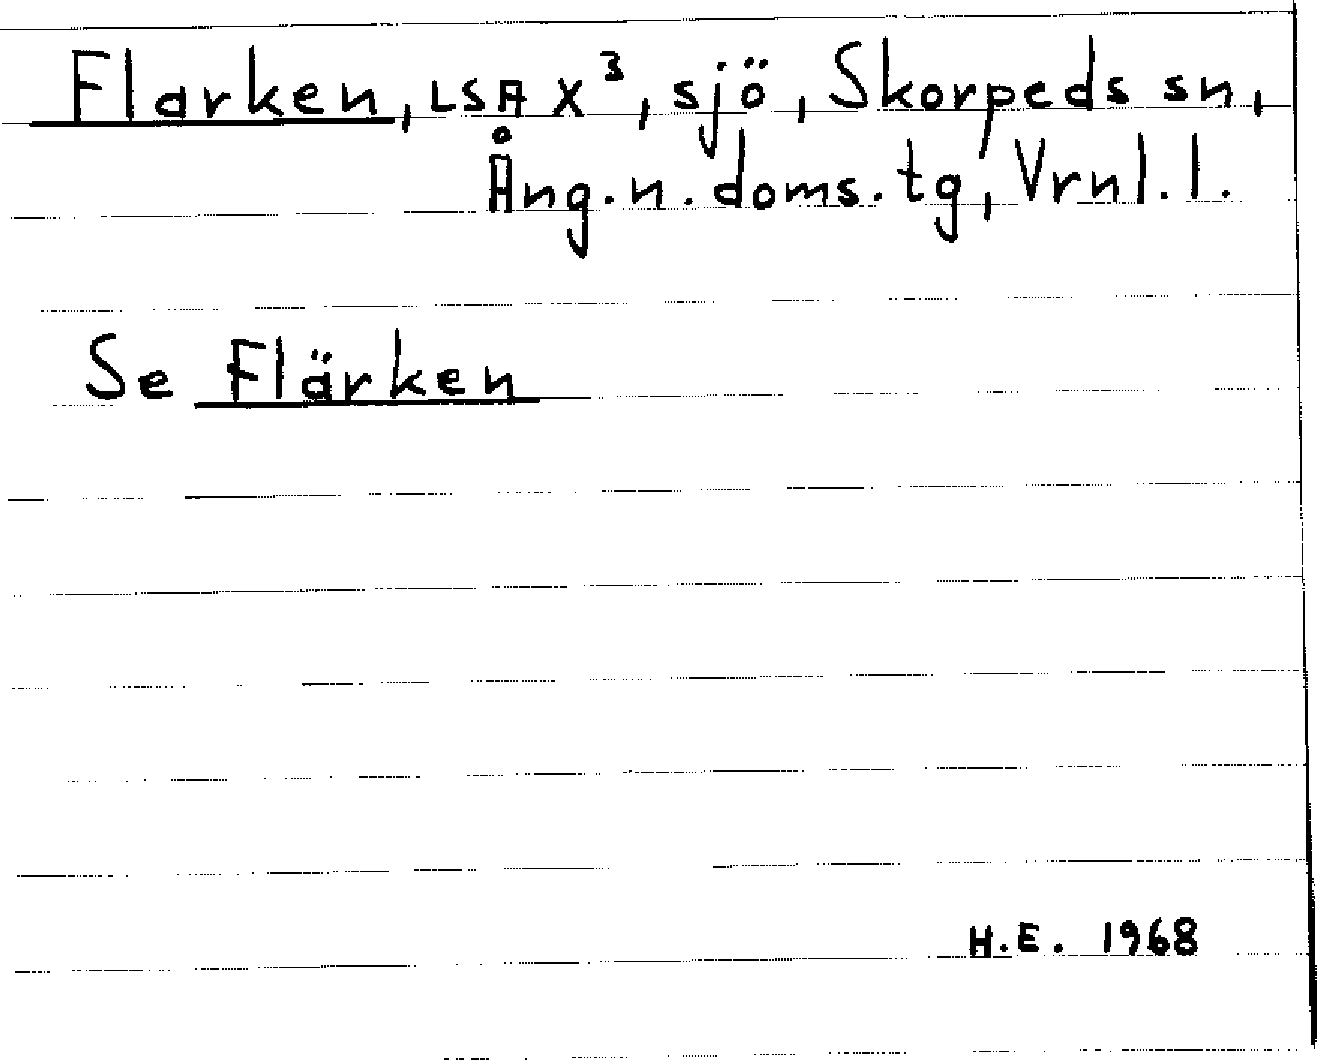 Flarken, LSA X³, sjö, Skorpeds sn,
Ång.n.doms.tg, Vrnl.l.
Se Flärken
H.E. 1968